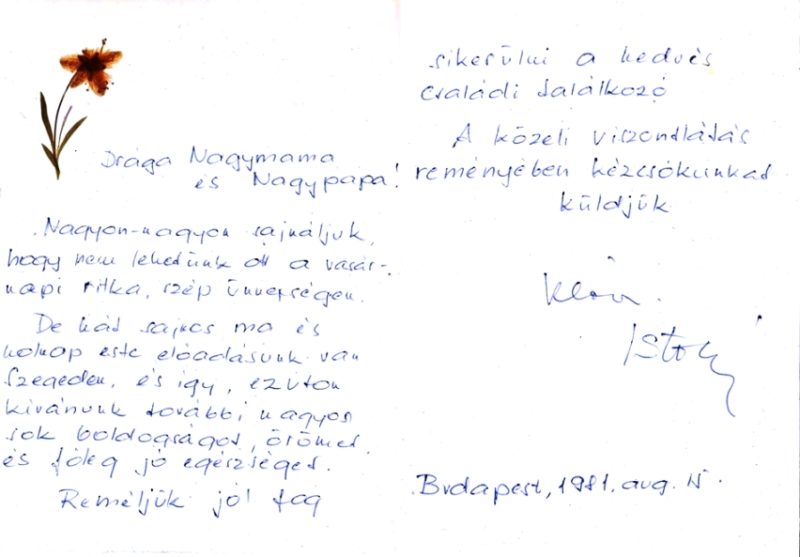 Drága Nagymama
és Nagypapa!
Nagyon-nagyon sajnáljuk,
hogy nem lehetünk ott a vasár-
napi ritka, szép ünnepségen.
De hát sajnos ma és
holnap este előadásunk van
Szegeden, és így, ezúton
kívánunk további nagyon
sok boldogságot, örömet,
és főleg jó egészséget.
Reméljük jól fog
sikerülni a kedves
családi találkozó
A közeli viszontlátás
reményében kézcsókunkat
küldjük
Klári
Budapest, 1981. aug. 15.